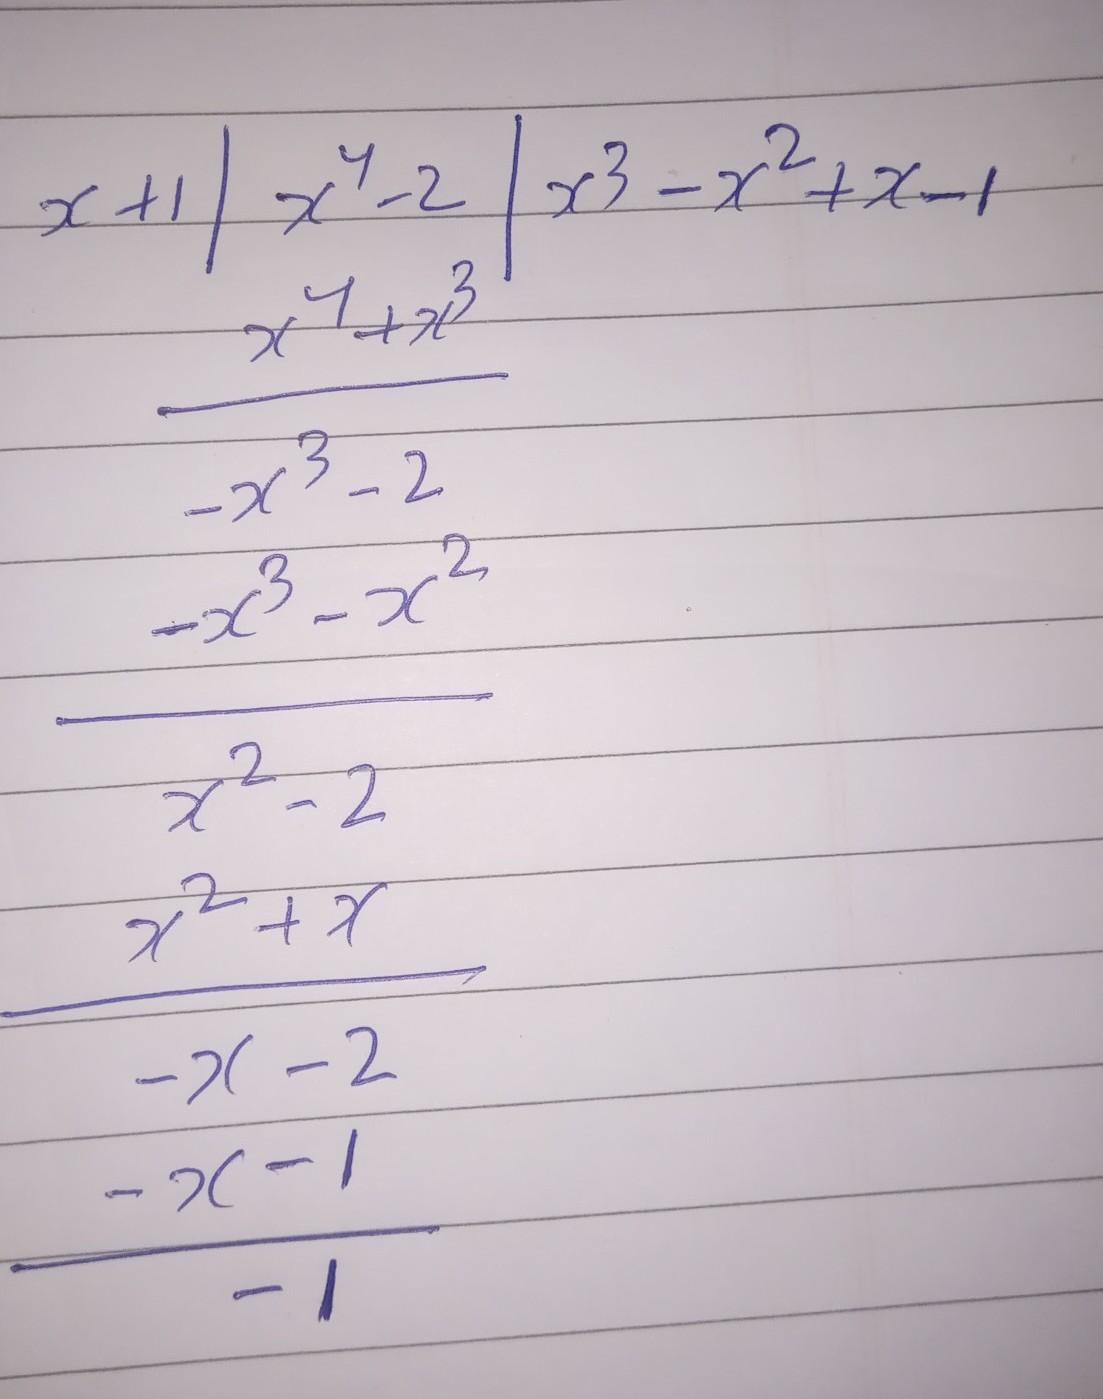 x+1 | x⁴-2 | x³-x²+x-1
x⁴+x³
-x³-2
-x³-x²
x²-2
x²+x
-x-2
-x-1
-1